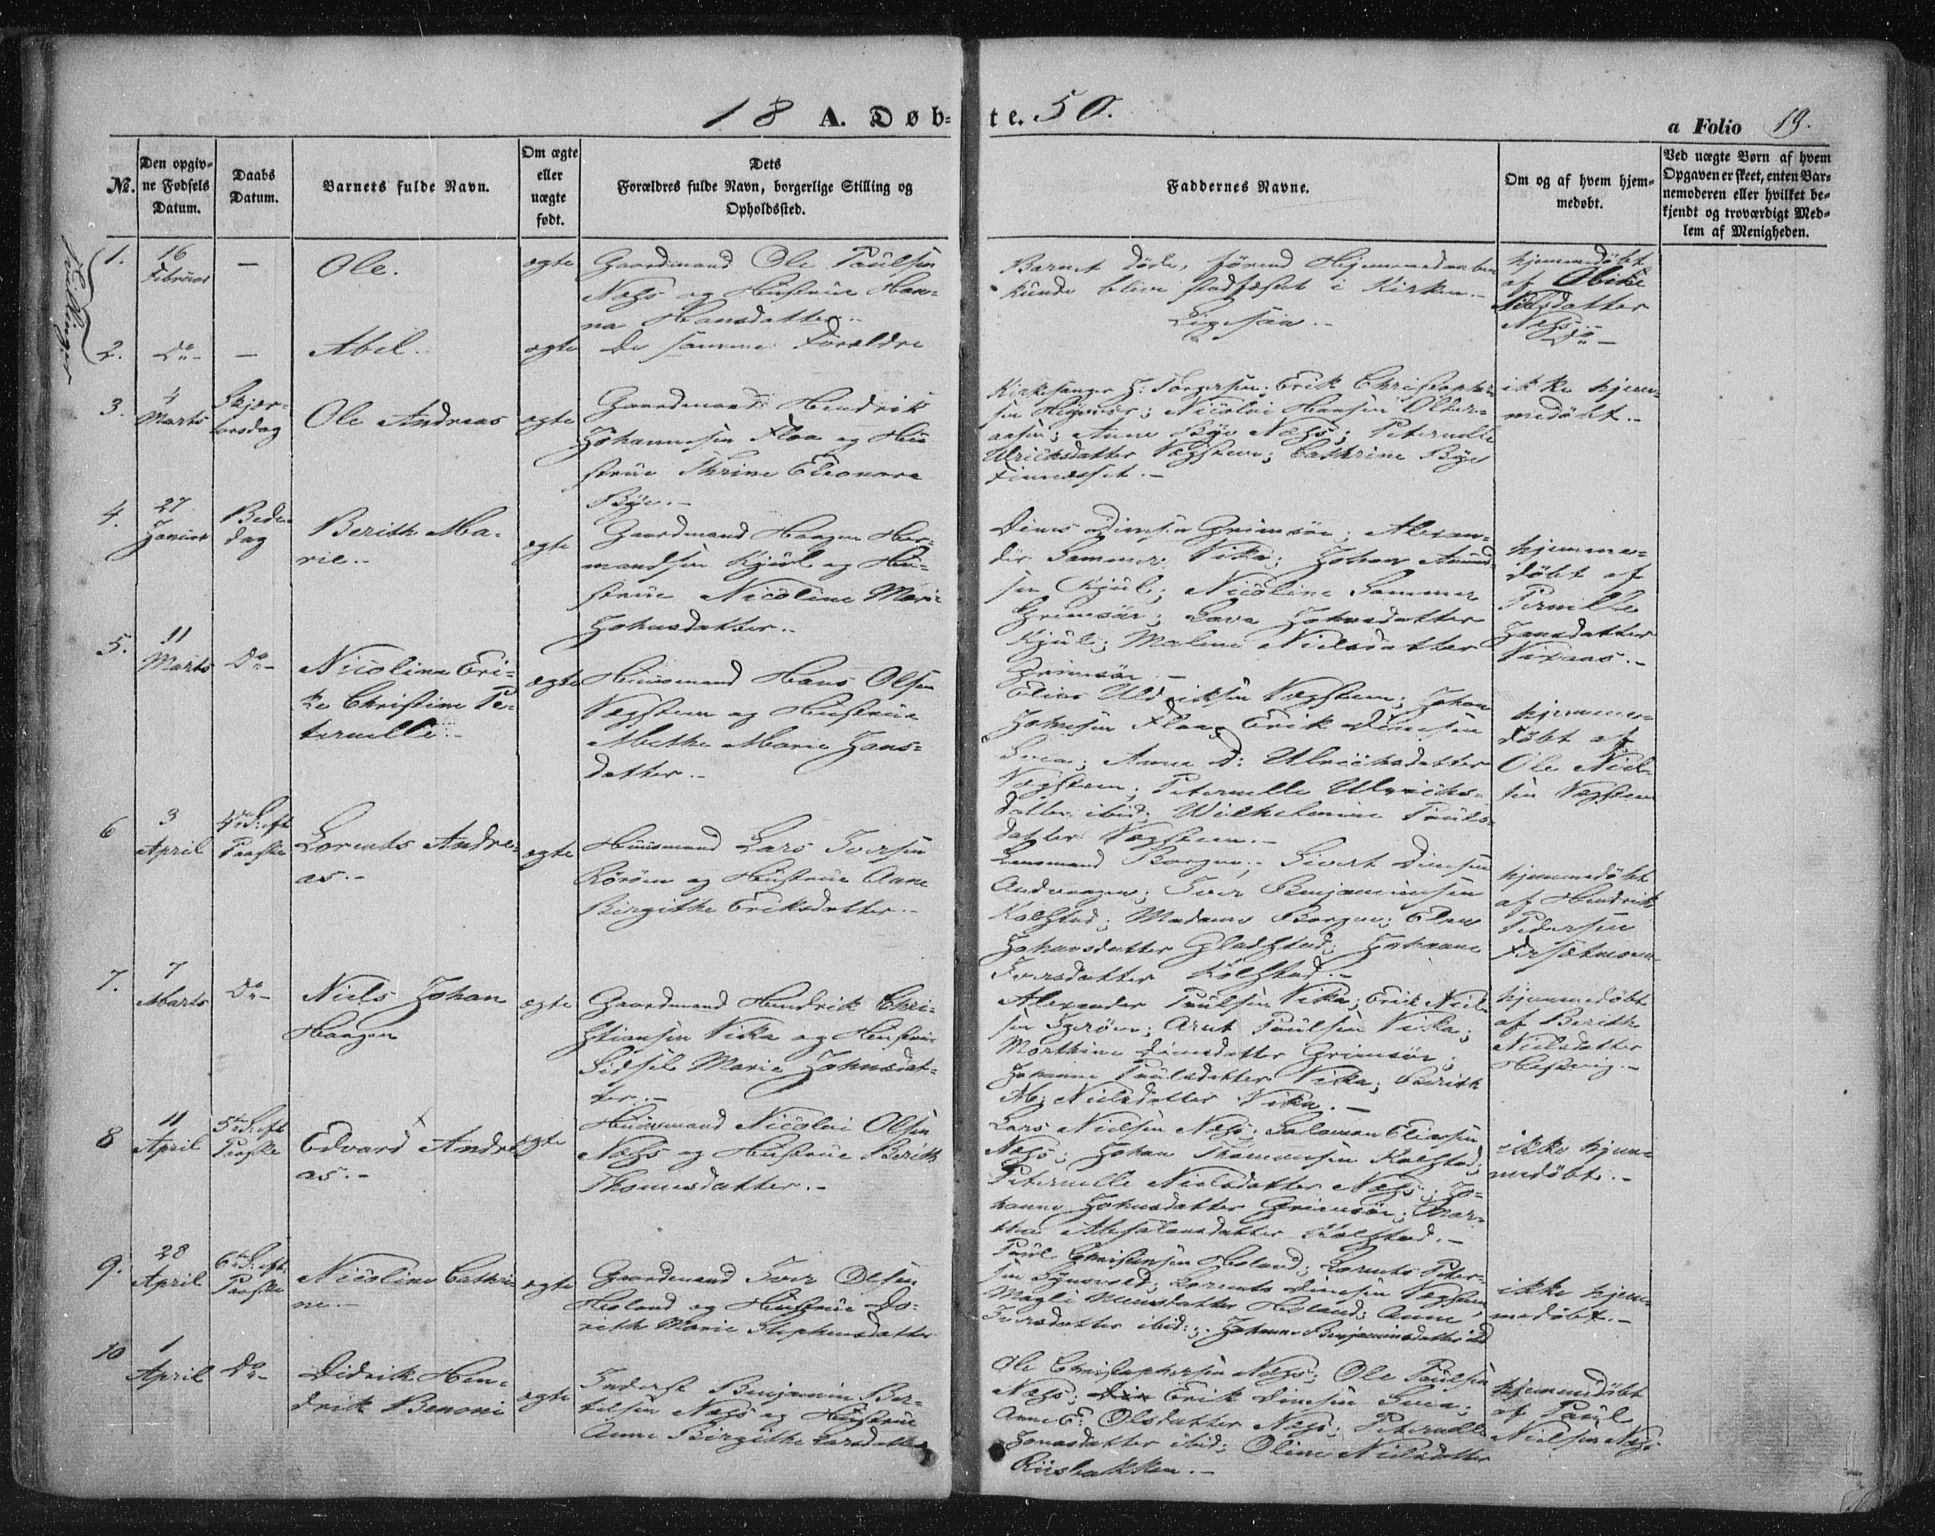 18 A. Døbte. 50.
a Folio 19.
No.
Den opgiv-
ne Fødsels
Datum.
Daabs
Datum.
Barnets fulde Navn.
Om ægte
eller
uægte
født.
Dets
Forældres fulde Navn, borgerlige Stilling og
Opholdssted.
Faddernes Navne.
Om og af hvem hjem-
medøbt.
Ved uægte Børn af hvem
Opgaven er skeet, enten Bar-
nemoderen eller hvilket be-
kjendt og troværdigt Med-
lem af Menigheden.
Tvillinger
1.
16
Februar
—
Ole.
ægte
Gaardmand Ole Paulsen
Næss og Hustrue Han-
na Hansdatter.-
Barnet døde, førend Hjemmedaaben
kunde blive stadfæstet i Kirken.-
hjemmedøbt
af Abike
Nilsdatter
Næss.-
2.
Do-
—
Abel.
ægte
De samme Forældre
Ligesaa.-
Do-
3.
4
Marts
Skjær-
torsdag
Ole Andreas
ægte
Gaardmand Hendrik
Johannesen Floa og Hu-
strue Thrine Eleonora
Bye.-
Kirkesanger H: Torgersen; Erik Christopher-
sen ; Nicolai Hansen Older-
aasen; Anne Bye Næss; Peternelle
Ulriksdatter Vægsteen; Cathrine Bye
Finnesset.-
ikke hjem-
medøbt.-
4.
27
Januar
Bede-
dag
Berith Ma-
rie.-
ægte
Gaardmand Haagen Her-
mandsen Kjul og Hu-
strue Nicoline Marie
Johnsdatter.-
Dines Dinesen Grimsøe; Alexan-
der Sammer Vika; Johan Amund-
sen Kjul; Nicoline Sammer
Grimsøe; Lava Johnsdatter
Kjul; Malene Nielsdatter
Grimsøe.-
hjemme-
døbt af
Pernille
Hansdatter
Vixaas.-
5.
11
Marts
Do-
Nicolina Eri-
ke Christine Pe-
ternelle.-
ægte
Huusmand Hans Olsen
Vægsteen og Hustrue
Methe Marie Hans-
datter.-
Elias Uldriksen Vægsteen; Johan
Johnsen Floa; Erik Dinesen
; Anne D: Ulriksdatter
Vægsteen; Peternelle Ulriks-
datter ibid; Wilhelmine Pauls-
datter Vægsteen.-
hjemme-
døbt af
Ole Niel-
sen Vægsteen
6
3
April
4de S: eft
Paaske
Lorents Andre-
as.-
ægte
Huusmand Lars Iversen
Rørøen og Hustrue Anne
Birgithe Eriksdatter.-
Lensmand Borgen; Sivert Dinesen
Andvaagen; Iver Benjaminsen
Kolstad; Madame Borgen; Elen
Johansdatter Gladstad; Johanne
Iversdatter Kolstad.-
hjemmedøbt
af Hendrik
Pedersen
7.
7
Marts
Do-
Niels Johan
Haagen
ægte
Gaardmand Hendrik Chri-
stiansen Vika og Hustrue
Sidsel Marie Johnsdat-
ter.-
Alexander Paulsen Vika; Erik Niel-
sen ; Arnt Paulsen Vika;
Marthine Dinesdatter Grimsøe;
Johanne Paulsdatter Vika; Berith
M: Nielsdatter Vika.-
hjemmedøbt
af Berith
Nielsdatter
8
11
April
5te S: eft
Paaske
Edvard Andre-
as.-
ægte
Huusmand Nicolai Olsen
Næss og Hustrue Berith
Thomesdatter.-
Lars Nielsen Næss; Salamon Eliasen
Næss; Johan Kolstad;
Peternelle Nielsdatter Næss; Jo-
hanne Johnsdatter Grimsøe; Mar-
tha Absalonsdatter Kolstad.-
ikke hjem-
medøbt.-
9.
28
April
6te S: eft
Paaske
Nicoline Cathri-
ne.-
ægte
Gaardmand Iver Olsen
Høland og Hustrue Do-
rith Marie Stephensdatter
Paul Høland; Lorents Peter-
sen ; Lorents Dinesen Vægsteen;
Magli Høland; Anne
Iversdatter ibid:; Johanne Benjaminsdatter ibid
ikke hjem-
medøbt.-
10
1
April
Do-
Didrik Hen-
drik Benoni
ægte
Inderst Benjamin Ber-
telsen Næss og Hustrue
Anne Birgithe Larsdatter
Ole Christophersen Næss; Ole Paulsen
Næss; Erik Dinesen ;
Anne C: Olsdatter Næss; Peternelle
Jonasdatter ibid; Oline Nielsdatter
Riisbakken.-
hjemmedøbt
af Paul
Nielsen Næss